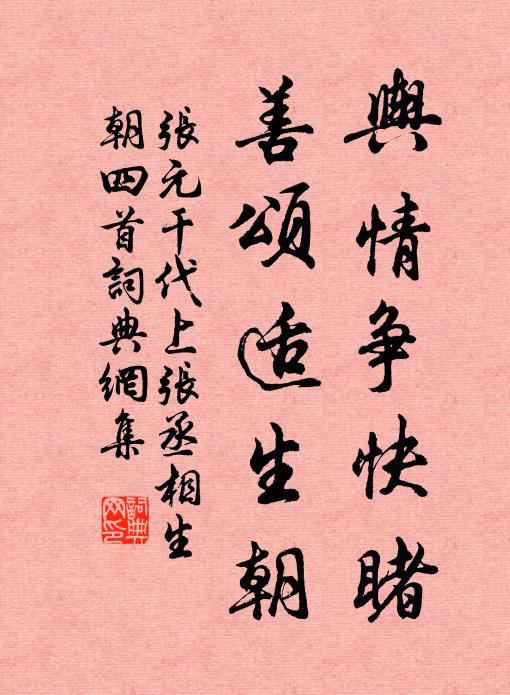 輿情争快睹
善頌适生朝
張元干代上張丞相生
朝四首詞典網集
詞典
网印